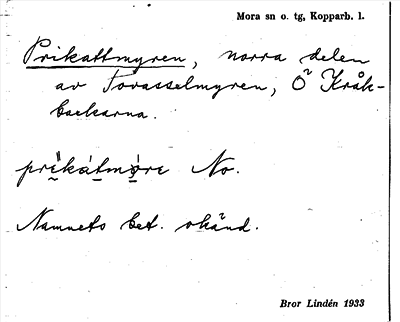 Mora sn o. tg, Kopparb. l.
Prikattmyren, norra delen
av Torasselmyren, Ö Kråk-
backarna.
No.
Namnets bet. okänd.
Bror Lindén 1933